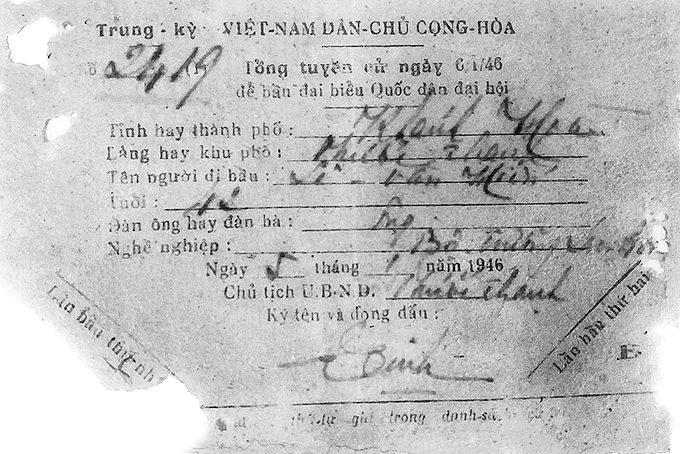 Trung - kỳ VIỆT-NAM DÂN-CHỦ CỘNG-HÒA
2419 (1) Tổng tuyển cử ngày 6/1/46
để bầu đại biểu Quốc dân đại hội
Tỉnh hay thành phố : Khánh Hòa
Làng hay khu phố :
Tên người đi bầu : Lê - Văn Hiến
Tuổi : 42
Đàn ông hay đàn bà : Ông
Nghề nghiệp : Bộ trưởng
Ngày 5 tháng 1 năm 1946
Chủ tịch U.B.N.D.
Ký tên và đóng dấu :
Lần bầu thứ nh
Lần bầu thứ hai
Đinh
B
tự ghi trong danh-sá